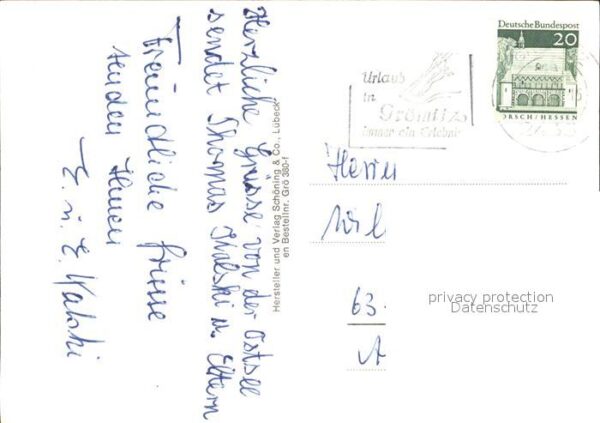 Herzliche Grüsse von der Ostsee
sendet Thomas u. Eltern
Freundliche Grüsse
senden Ihnen
E. u. E.
Hersteller und Verlag Schöning & Co., Lübeck
en Bestellnr. Grö 380-f
Urlaub
in
Grömitz
immer ein Erlebnis
Deutsche Bundespost
20
ORSCH/HESSEN
Herrn
63.
A
privacy protection
Datenschutz